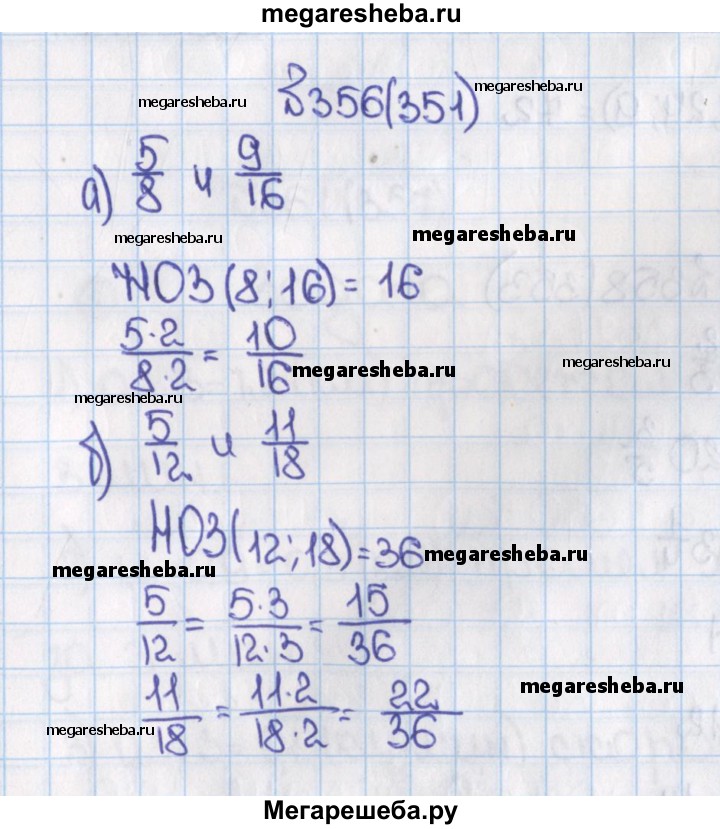 megaresheba.ru
№356(351) megaresheba.ru
megaresheba.ru
а) 5/8 и 9/16
megaresheba.ru megaresheba.ru
НОЗ (8;16) = 16
5·2/8·2 = 10/16
megaresheba.ru megaresheba.ru
megaresheba.ru
б) 5/12 и 11/18
megaresheba.ru
НОЗ(12;18)=36 megaresheba.ru
megaresheba.ru
5/12 = 5·3/12·3 = 15/36
megaresheba.ru
11/18 = 11·2/18·2 = 22/36
megaresheba.ru
Мегарешеба.ру